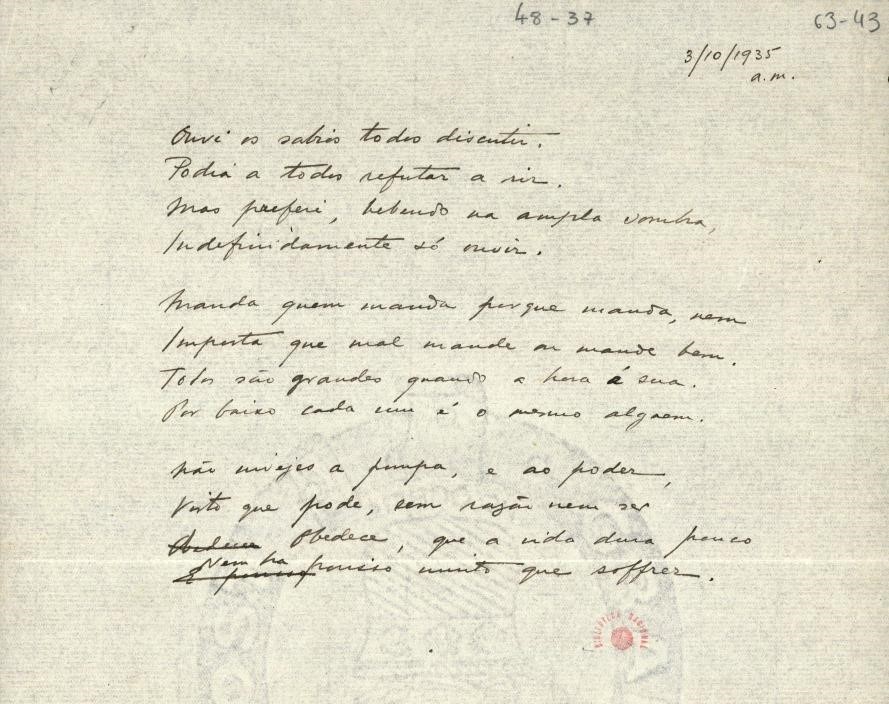 48-37
63-43
3/10/1935
a.m.
Ouvi os sabios todos discutir.
Podia a todos refutar a rir.
Mas preferi, bebendo na ampla sombra,
Indefinidamente só ouvir.
Manda quem manda porque manda, nem
Importa que mal mande ou mande bem.
Todos são grandes quando a hora é sua.
Por baixo cada um é o mesmo alguem.
Não invejes a pompa, e ao poder,
Visto que pode, sem razão nem ser
Obedece Obedece, que a vida dura pouco
Nem ha
E pouco preciso muito que soffrer.
BIBLIOTECA NACIONAL